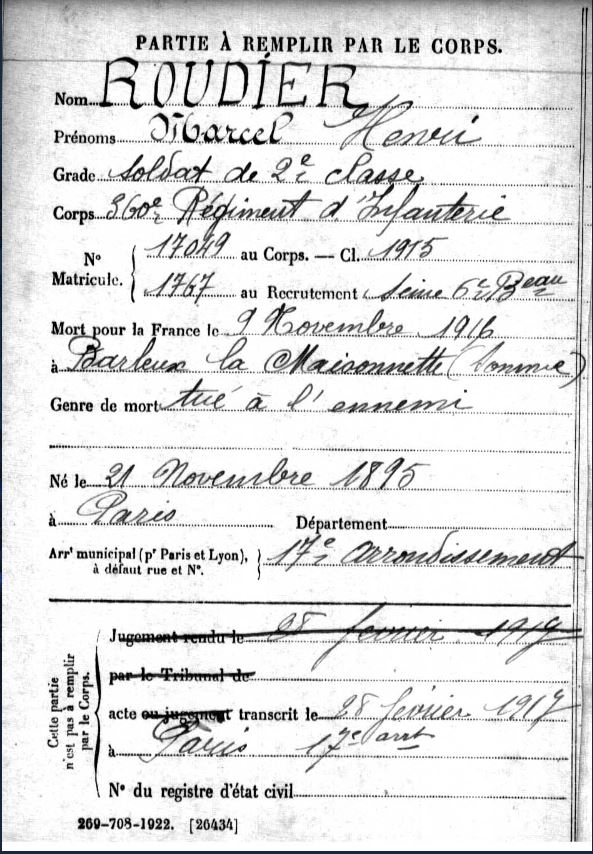 PARTIE À REMPLIR PAR LE CORPS.
Nom ROUDIER
Prénoms Marcel Henri
Grade soldat de 2e classe
Corps 360e Régiment d'Infanterie
No Matricule. { 17049 au Corps. — Cl. 1915
1767 au Recrutement Seine 6e Beau
Mort pour la France le 9 Novembre 1916
à Barleux la Maisonnette (Somme)
Genre de mort tué à l'ennemi
Né le 21 Novembre 1895
à Paris Département
Arrt municipal (pr Paris et Lyon), à défaut rue et No. } 17e arrondissement
Cette partie n'est pas à remplir par le Corps.
Jugement rendu le 28 février 1917
par le Tribunal de
acte ou jugement transcrit le 28 février 1917
à Paris 17e arrt
No du registre d'état civil
269-708-1922. [26434]